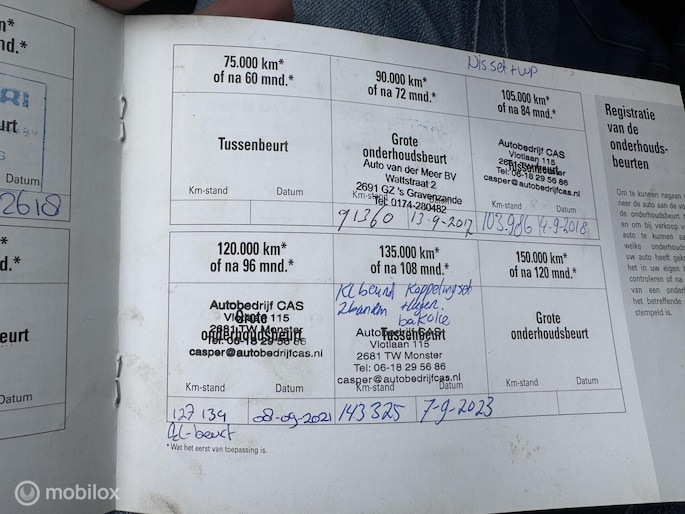 Dis set + wp
75.000 km*
of na 60 mnd.*
90.000 km*
of na 72 mnd.*
105.000 km*
of na 84 mnd.*
Tussenbeurt
Grote
onderhoudsbeurt
Auto van der Meer BV
Wattstraat 2
2691 GZ 's Gravenzande
Tel. 0174-280482
Autobedrijf CAS
Vlotlaan 115
Tussenbeurt
Tel: 06-18 29 56 86
casper@autobedrijfcas.nl
Km-stand Datum
91360 13-9-2017
103.986 4-9-2018
120.000 km*
of na 96 mnd.*
135.000 km*
of na 108 mnd.*
150.000 km*
of na 120 mnd.*
Autobedrijf CAS
Vlotlaan 115
Grote
onderhoudsbeurt
2681 TW Monster
Tel: 06-18 29 56 86
casper@autobedrijfcas.nl
Km-stand Datum
127 134 08-09-2021
KL-beurt
KL beurt Koppelingset
2 banden
Autobedrijf CAS
Vlotlaan 115
Tussenbeurt
2681 TW Monster
Tel: 06-18 29 56 86
casper@autobedrijfcas.nl
Km-stand Datum
143325 7-9-2023
Grote
onderhoudsbeurt
Km-stand Datum
* Wat het eerst van toepassing is.
Registratie
van de
onderhouds-
beurten
Om te kunnen nagaan
neer de auto aan de
de onderhoudsbeurt
en om bij verkoop v
auto te kunnen aa
welke onderhouds
uw auto heeft gek
het in uw eigen
controleren of na
van een onderh
het betreffende
stempeld is.
km*
mnd.*
Datum
2618
beurt
Datum
mobilox